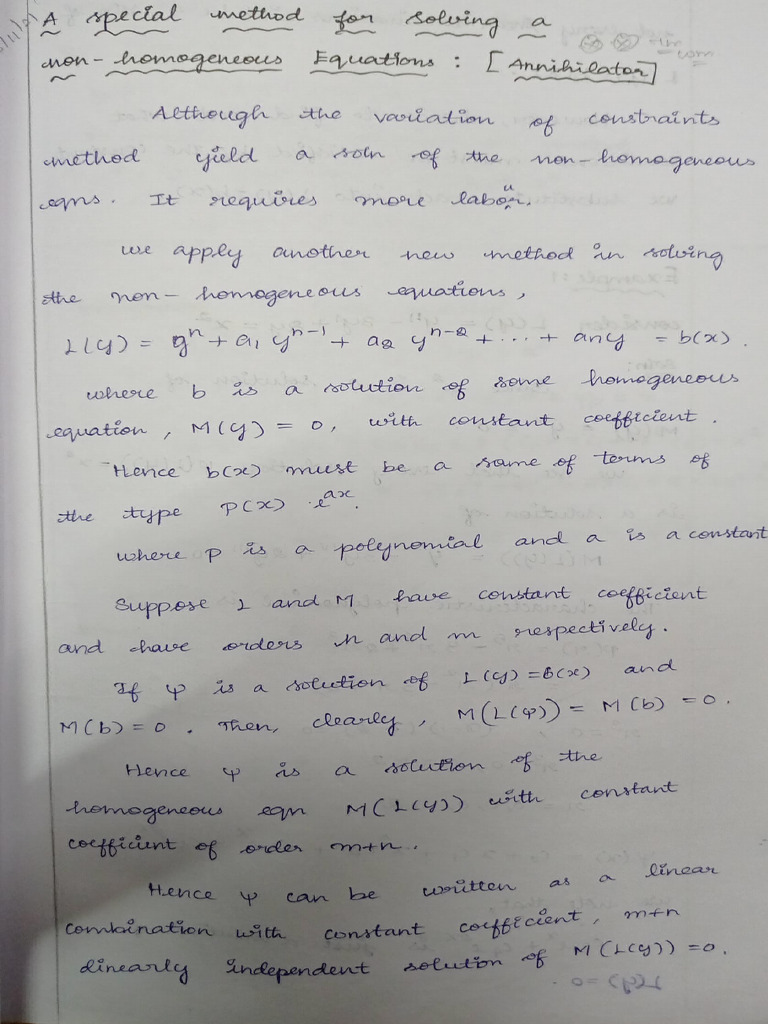 A special method for solving a
non-homogeneous Equations : [Annihilator]
Although the variation of constraints
method yield a soln of the non-homogeneous
eqns. It requires more labour.
we apply another new method in solving
the non-homogeneous equations,
L(y) = yⁿ + a₁ yⁿ⁻¹ + a₂ yⁿ⁻² + ... + any = b(x).
where b is a solution of some homogeneous
equation, M(y) = 0, with constant coefficient.
Hence b(x) must be a same of terms of
the type P(x) eᵃˣ.
where p is a polynomial and a is a constant
Suppose L and M have constant coefficient
and have orders n and m respectively.
If φ is a solution of L(y) = b(x) and
M(b) = 0. Then, clearly, M(L(φ)) = M(b) = 0.
Hence φ is a solution of the
homogeneous eqn M(L(y)) with constant
coefficient of order m+n.
Hence φ can be written as a linear
combination with constant coefficient, m+n
linearly independent solution of M(L(y)) = 0.